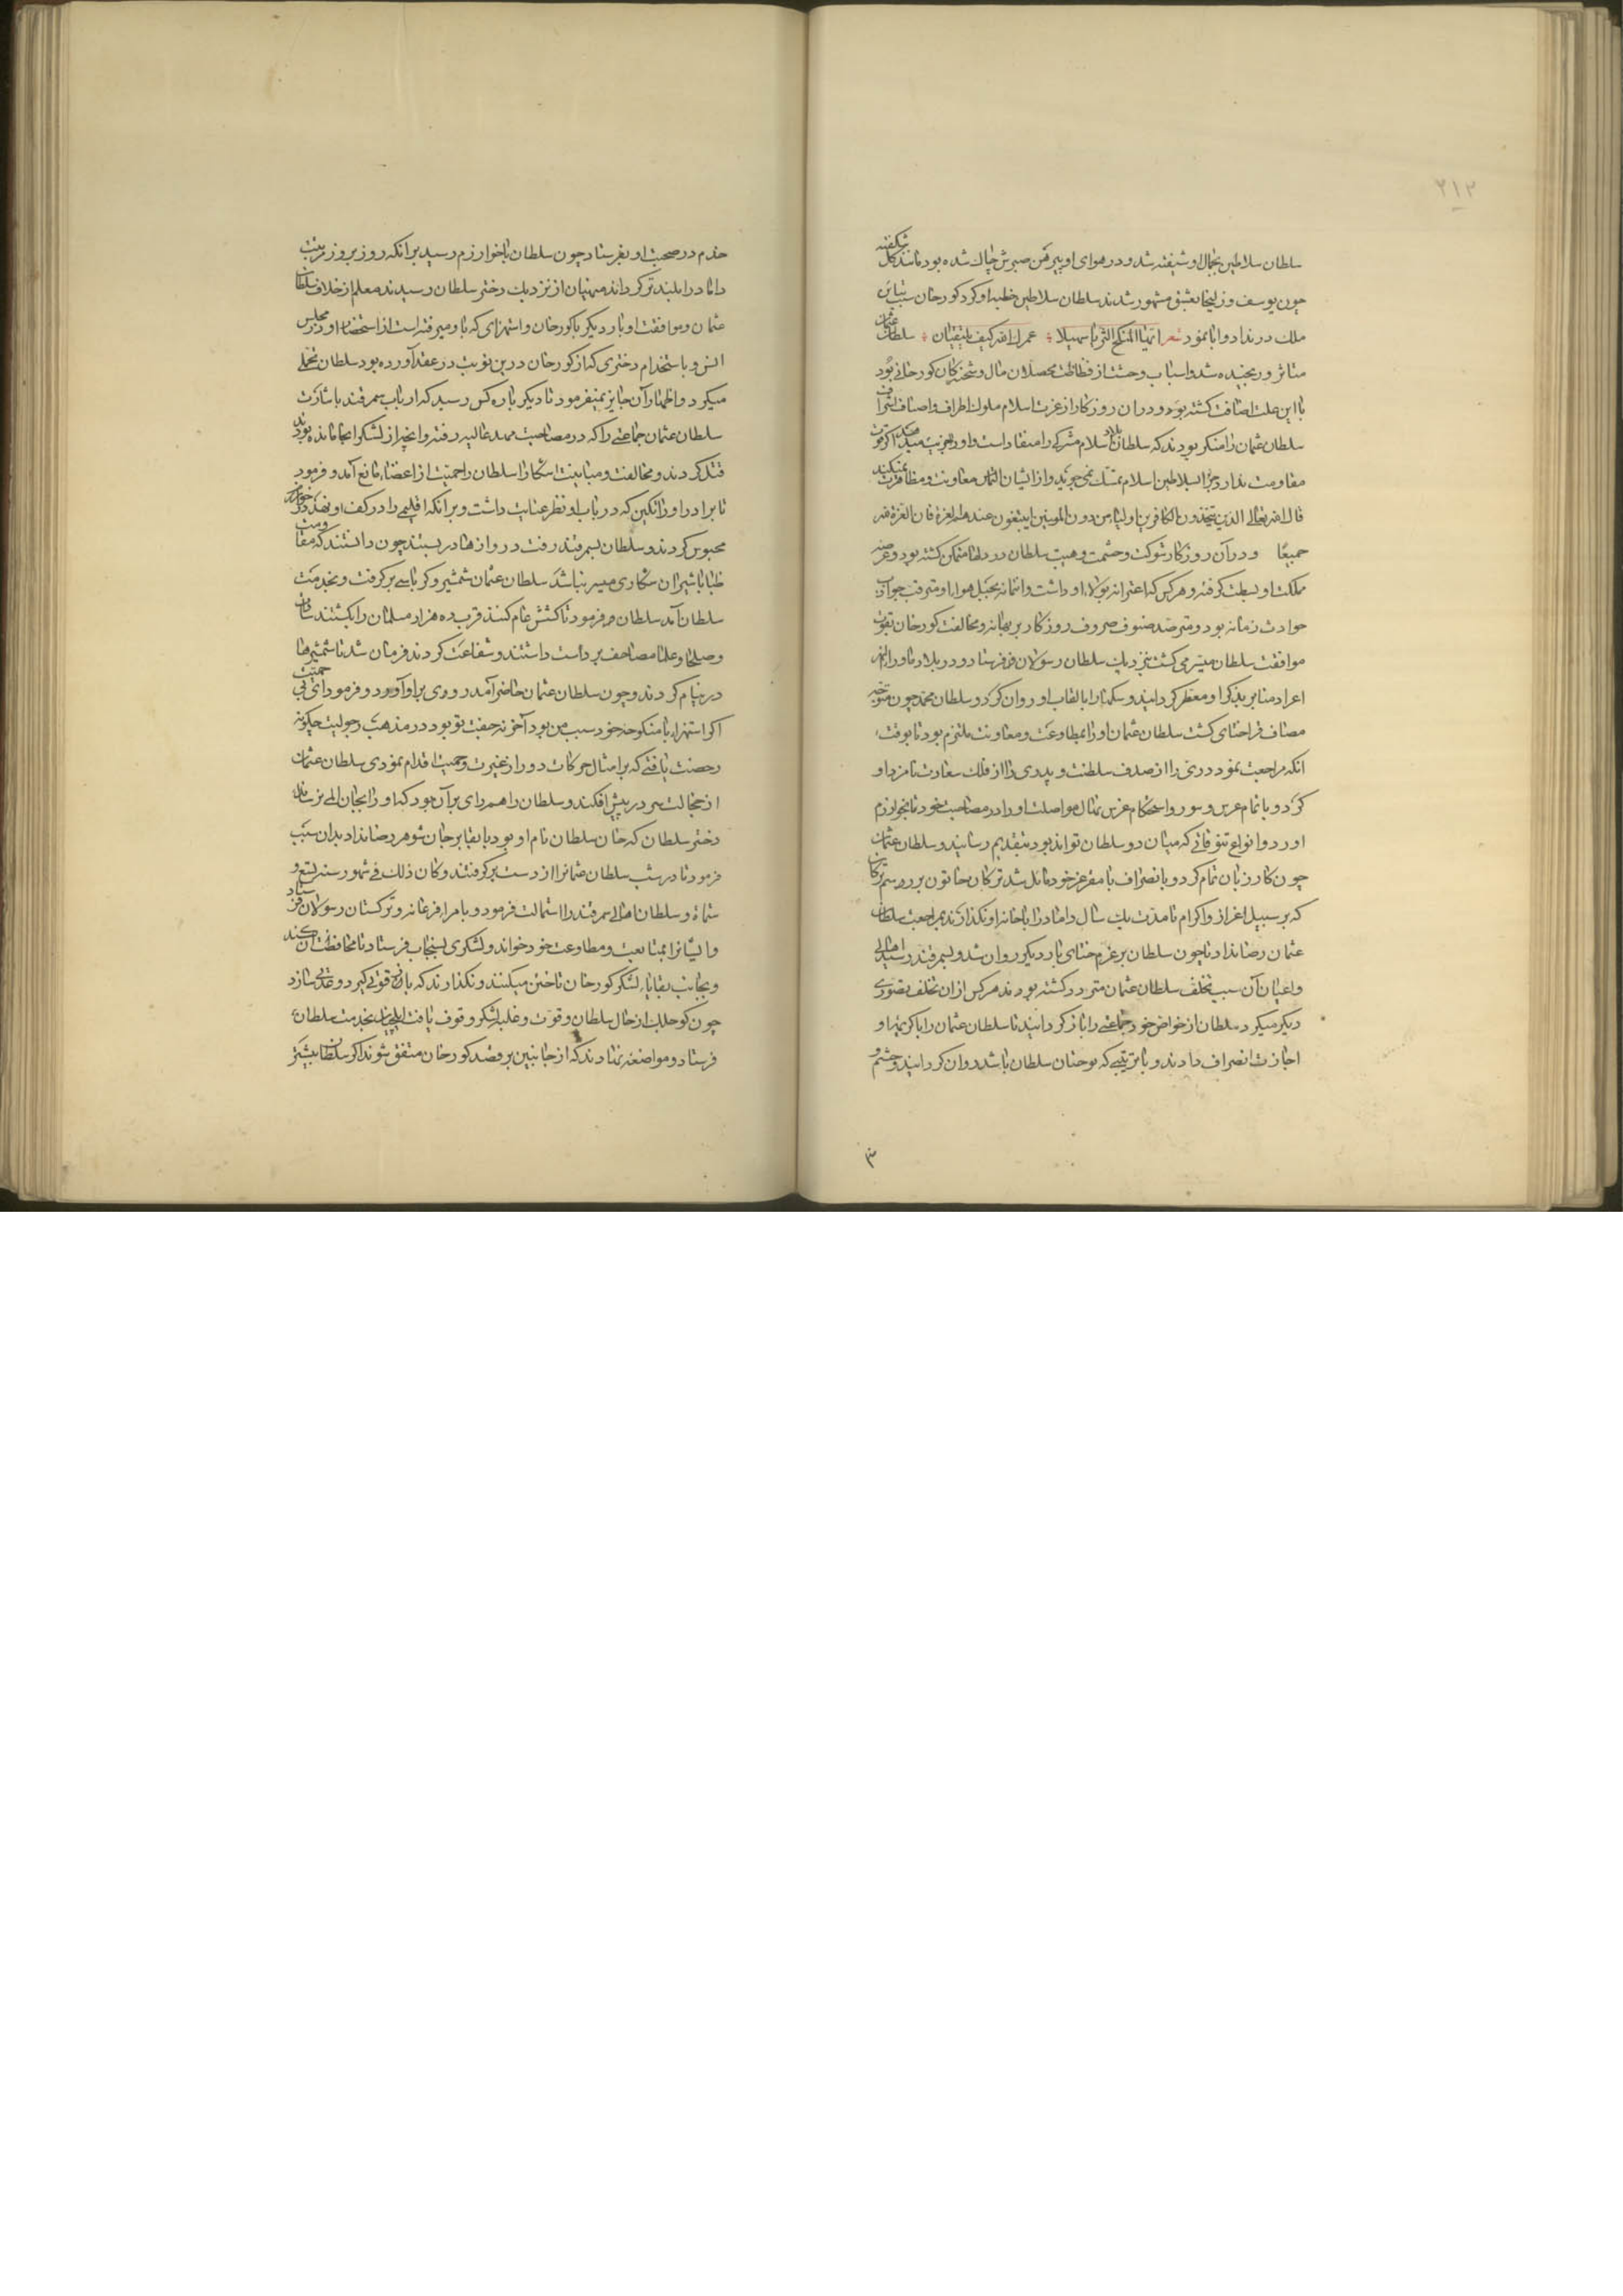 ۲۱۲
سلطان سلاطین بجمال او شیفته شد و در هوای او پیرهن صبرش چاک شده بود مانند گل شکفته
چون یوسف و زلیخا بعشق مشهور شدند سلطان سلاطین خطبه او کرد کورخان سبب تباین
ملک در نداد و ابا نمود شعر ایها المنکح الثریا سهیلا عمرک الله کیف یلتقیان سلطان عثمان
متاثر و رنجیده شد و اسباب وحشت از فظاظت محصلان مال و شحنکان کورخانی بود
با این علت اضافت کشته بود و در ان روزکار از عزت اسلام ملوک اطراف و اصناف اشراف
سلطان عثمان را منکر بودند که سلطان بلاد اسلام مشرکی را منقاد است و او را جزیت میدهد اکر قوت
مقاومت ندارد چرا بسلاطین اسلام تمسک نمی جوید و از ایشان التماس معاونت و مظاهرت نمیکند
قال الله تعالی الذین یتخذون الکافرین اولیاء من دون المومنین ایبتغون عندهم العزة فان العزة لله
جمیعًا و در آن روزکار شوکت و حشمت و هیبت سلطان در دلها متمکن کشته بود و عرصه
مملکت او بسطت کرفته و هر کس که اعتزا به تولاء او داشت و انتما بحبل هوا او مترقب جواذب
حوادث زمانه بود و مترصد صنوف صروف روزکار بر بهانه و مخالفت کورخان بقوت
موافقت سلطان میسر می کشت بنزدیک سلطان رسولان فرستاد و در بلاد ماوراء النهر
اعواد منابر بذکر او معطر کردانید و سکها را بالقاب او روان کرد و سلطان محمد چون متوجه
مصاف قراختای کشت سلطان عثمان او را بمطاوعت و معاونت ملتزم بود تا بوقت
انکه مراجعت نمود دری را از صدف سلطنت و بدری را از فلک سعادت نامزد او
کرد و باتمام عرس و سور و استحکام غرس نهال مواصلت او را در مصاحبت خود تا بخوارزم
اورد و انواع تنوقاتی که میان دو سلطان تواند بود بتقدیم رسانید و سلطان عثمان
چون کار زفاف تمام کرد و بانصراف با مقر عز خود مایل شد ترکان خاتون بر رسم ترکان
که بر سبیل اعزاز و اکرام تا مدت یک سال داماد را با خانه او نکذارند بمراجعت سلطان
عثمان رضا نداد تا چون سلطان بر عزم ختای بار دیکر روان شد و بسمرقند رسید اهالی
و اعیان آن سبب تخلف سلطان عثمان متردد کشته بودند هر کس از ان تخلف تصوری
دیکر میکرد سلطان از خواص خود جماعتی را باز کردانید تا سلطان عثمان را با کریمه او
اجازت انصراف دادند و با ترتیبی که بوختان سلطان باشد روان کردانید و حشم و
خدم در صحبت او بفرستاد چون سلطان با خوارزم رسید بر آنکه روز بروز مرتبت
داماد را بلندتر کرداند منهیان از نزدیک دختر سلطان رسیدند معلم از خلاف سلطان
عثمان و موافقت او بار دیکر با کورخان و استهزای که با او میرفته است از استحضار او در مجلس
انس و باستخدام دختری که از کورخان در این نوبت در عقد آورده بود سلطان تحملی
میکرد و اظهار آن جایز نمیفرمود تا دیکر باره کس رسید که ارباب سمرقند باشارت
سلطان عثمان جماعتی را که در مصاحبت مهد عالیه رفته و انچه از لشکر انجا مانده بودند
قتل کردند و مخالفت و مباینت اشکارا سلطان را حمیت از اغضاء مانع آمد و فرمود
تا برادر او را که در باب او نظر عنایت داشت و بر آنکه اقلیمی را در کف او نهد در خوارزم
محبوس کردند و سلطان بسمرقند رفت دروازها در بستند چون دانستند که مقاومت
ظبا با شیران شکاری میسر نباشد سلطان عثمان شمشیر و کرباسی بر کرفت و بخدمت
سلطان آمد سلطان فرمود تا کشش عام کنند قرب ده هزار مسلمان را بکشتند سادات
و صلحا و علما مصاحف بر داشتند و شفاعت کردند فرمان شد تا شمشیرها
در نیام کردند و چون سلطان عثمان حاضر آمد روی بر او آورد و فرمود ای بی حمیت
اکر استهزا با منکوحه خود سبب من بود آخر نه جفت تو بود در مذهب رجولیت چکونه
رخصت یافتی که بر امثال حرکات دور از غیرت و حمیت اقدام نمودی سلطان عثمان
از خجالت سر در پیش افکند و سلطان را هم رای بر آن بود که او را بجان المی نرساند
دختر سلطان که خان سلطان نام او بود بابقا بر جان شوهر رضا نداد بدان سبب
فرمود تا در شب سلطان عثمانرا از دست بر کرفتند و کان ذلک فی شهور سنه تسع و
ستمائة و سلطان اهالی سمرقند را استمالت فرمود و بامراء فرغانه و ترکستان رسولان فرستاد
و ایشانرا بمتابعت و مطاوعت خود خواند و لشکری بسنجاب فرستاد تا محافظت آن کنند
و بجانب بقایاء لشکر کورخان تاختن میکنند و نکذارند که باز قوتی کیرد و عدتی سازد
چون کوجلک از حال سلطان و قوت و غلبه لشکر وقوف یافت ایلچیان بخدمت سلطان
فرستاد و مواضعه نهادند که از جانبین بر قصد کورخان متفق شوند اکر سلطان بیشتر